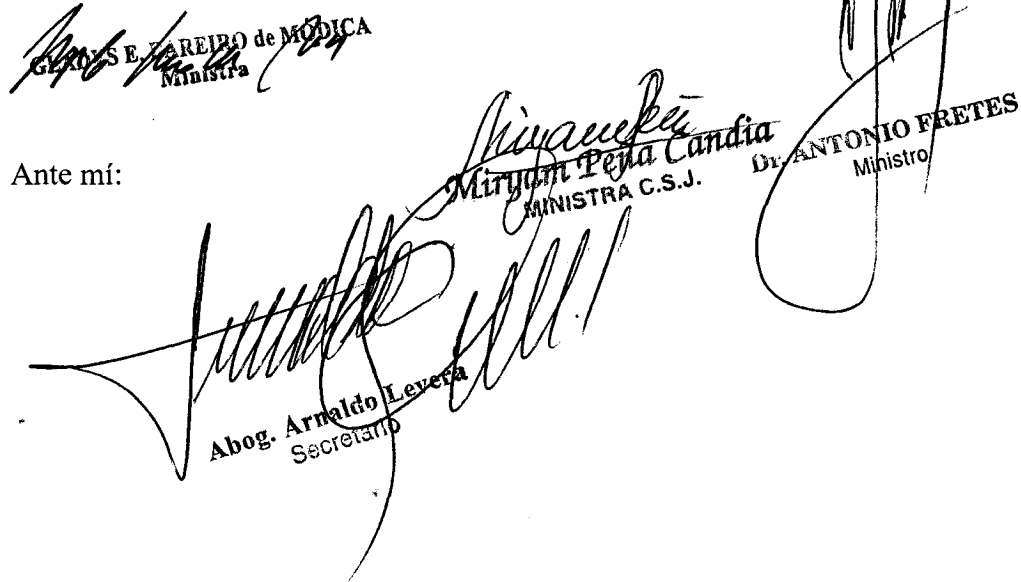 GLADYS E. BAREIRO de MÓDICA
Ministra
Miryam Peña Candia
MINISTRA C.S.J.
Dr. ANTONIO FRETES
Ministro
Ante mí:
Abog. Arnaldo Levera
Secretario